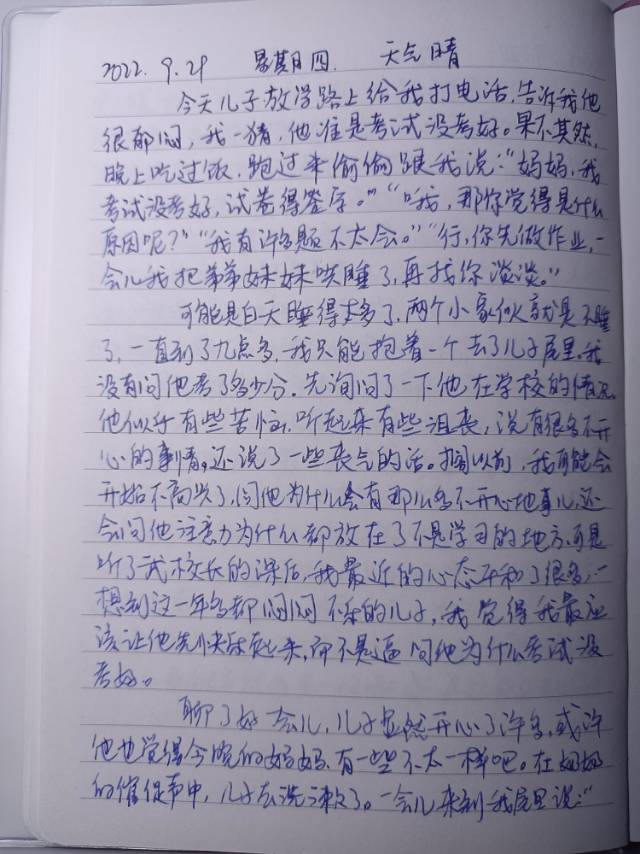 2022.9.29 星期四 天气晴
今天儿子放学路上给我打电话,告诉我他
很郁闷,我一猜,他准是考试没考好。果不其然,
晚上吃过饭,跑过来偷偷跟我说:“妈妈,我
考试没考好,试卷得签字。”“哦,那你觉得是什么
原因呢?”“我有许多题不太会。”“行,你先做作业,一
会儿我把弟弟妹妹哄睡了,再找你谈谈。”
可能是白天睡得太多了,两个小家伙就是不睡
了,一直到了九点多,我只能抱着一个去了儿子屋里。我
没有问他考了多少分,先询问了一下他在学校的情况。
他似乎有些苦恼,听起来有些沮丧,说有很多不开
心的事情,还说了一些丧气的话。搁以前,我可能会
开始不高兴了,问他为什么会有那么多不开心地事儿,还
会问他注意力为什么都放在了不是学习的地方,可是
听了武校长的课后,我最近的心态平和了很多,一
想到这一年多都闷闷不乐的儿子,我觉得我最应
该让他先快乐起来,而不是逼问他为什么考试没
考好。
聊了好会儿,儿子显然开心了许多,或许
他也觉得今晚的妈妈,有一些不太一样吧。在妈妈
的催促声中,儿子去洗漱了。一会儿来到我屋里说:“